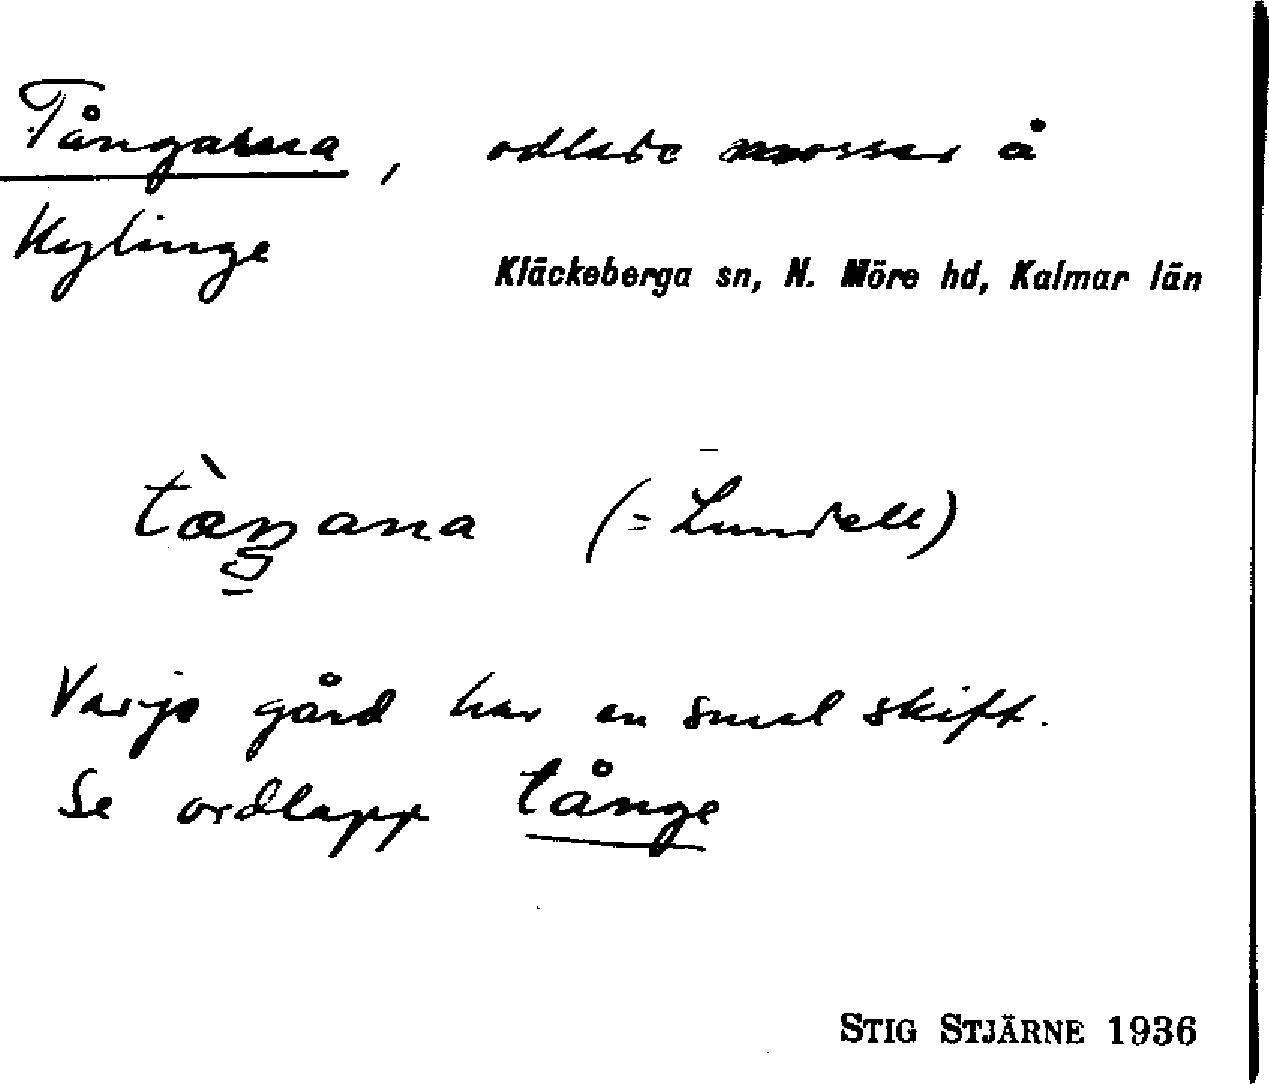 Tångarna, odlade mossar å
Kylinge
Kläckeberga sn, N. Möre hd, Kalmar län
(= Lundell)
Varje gård har en smal skift.
Se ordlapp tånge
STIG STJÄRNE 1936